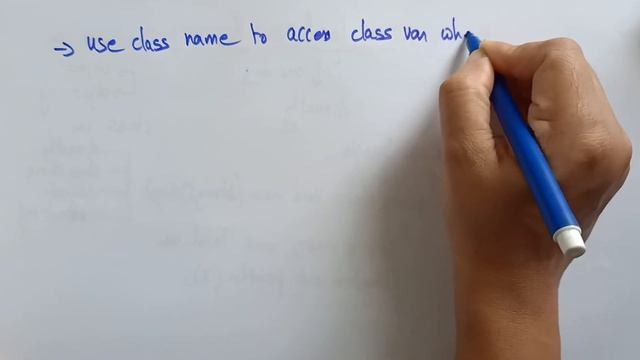 → use class name to access class var wh